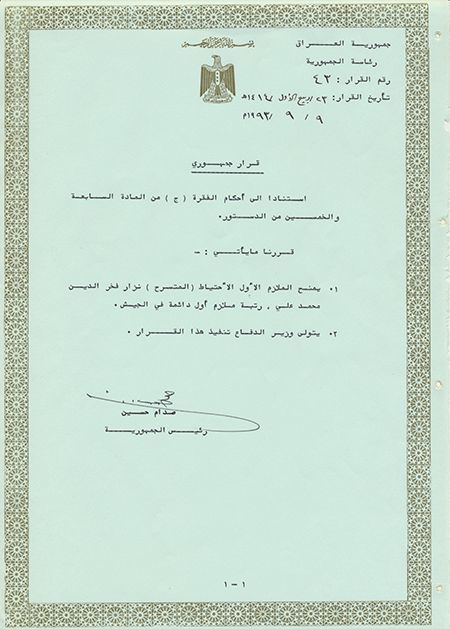 بسم الله الرحمن الرحيم
جمهورية العـــراق
رئاسة الجمهورية
رقم القرار : ٤٢
تأريخ القرار: ٢٣/ربيع الأول/١٤١٤هـ
٩ / ٩ /١٩٩٣م
قرار جمهوري
استنادا الى أحكام الفقرة ( ج ) من المادة السابعة
والخمسين من الدستور.
قررنا مايأتي : -
١. يمنح الملازم الاول الاحتياط (المتسرح ) نزار فخر الديـن
محمد علي ، رتبة ملازم أول دائمة في الجيش .
٢. يتولى وزير الدفاع تنفيذ هذا القـــرار .
صدام حسين
رئيس الجمهوريـــة
١ - ١